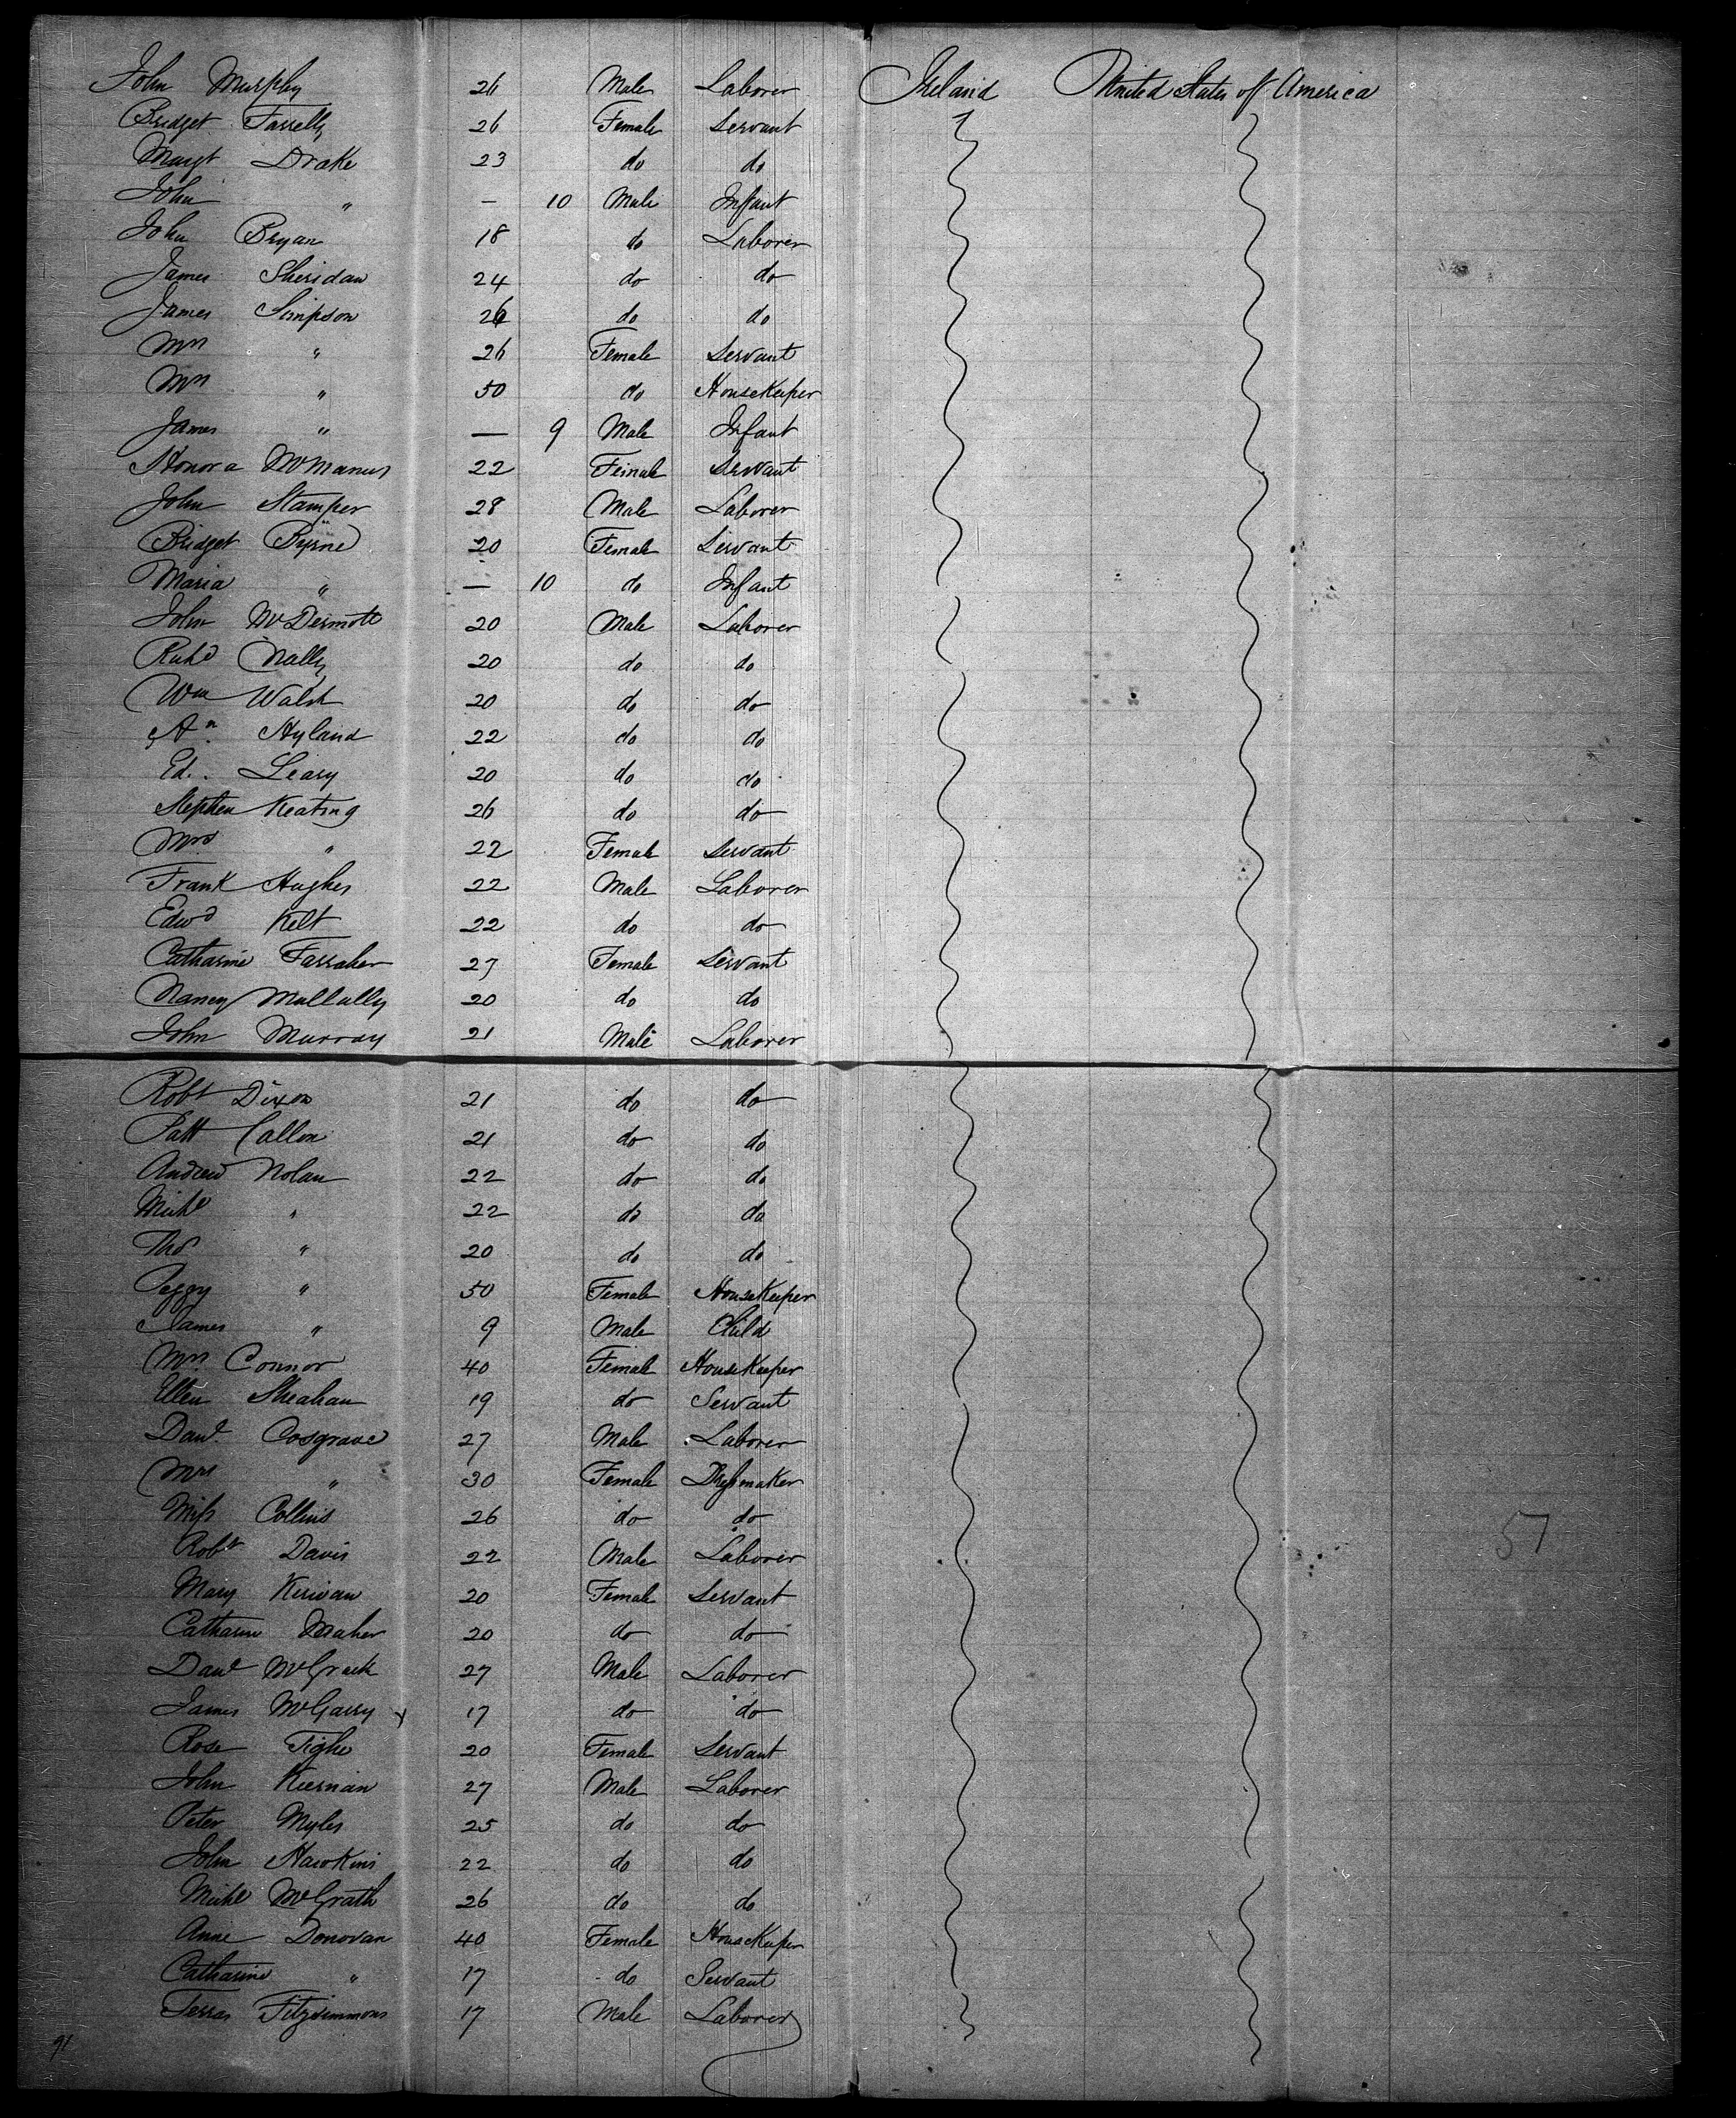 John Murphy 26 Male Laborer Ireland United States of America
Bridget Farrelly 26 Female Servant
Margt Drake 23 do do
John " — 10 Male Infant
John Bryan 18 do Laborer
James Sheridan 24 do do
James Simpson 26 do do
Mrs " 26 Female Servant
Mrs " 50 do HouseKeeper
James " — 9 Male Infant
Honora McManus 22 Female Servant
John Stamper 28 Male Laborer
Bridget Byrne 20 Female Servant
Maria " — 10 do Infant
John McDermott 20 Male Laborer
Richd Nally 20 do do
Wm Walsh 20 do do
An Hyland 22 do do
Ed. Leary 20 do do
Stephen Keating 26 do do
Mrs " 22 Female Servant
Frank Hughes 22 Male Laborer
Edwd Kelt 22 do do
Catharine Farraher 27 Female Servant
Nancy Mullally 20 do do
John Murray 21 Male Laborer
Robt Dixon 21 do do
Patt Callon 21 do do
Andrew Nolan 22 do do
Michl " 22 do do
Thos " 20 do do
Peggy " 50 Female HouseKeeper
James " 9 Male Child
Mrs Connor 40 Female HouseKeeper
Ellen Sheahan 19 do Servant
Danl Cosgrave 27 Male Laborer
Mrs " 30 Female Dressmaker
Miss Collins 26 do do
Robt Davis 22 Male Laborer
Mary Kirivan 20 Female Servant
Catharine Maher 20 do do
Danl McGrath 27 Male Laborer
James McGarry 17 do do
Rose Tighe 20 Female Servant
John Kiernan 27 Male Laborer
Peter Myles 25 do do
John Hawkins 22 do do
Michl McGrath 26 do do
Anne Donovan 40 Female HouseKeeper
Catharine " 17 do Servant
Fitzsimmons 17 Male Laborer
51
91